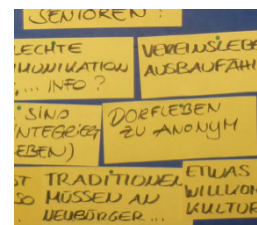 SENIOREN?
LECHTE
MUNIKATION
... INFO?
VEREINSLEBE
AUSBAUFÄHI
SIND
NTEGRIERT
EBEN)
DORFLEBEN
ZU ANONYM
ST TRADITIONEL
SO MÜSSEN AN
NEUBÜRGER...
ETWAS
WILLKOM
KULTUR